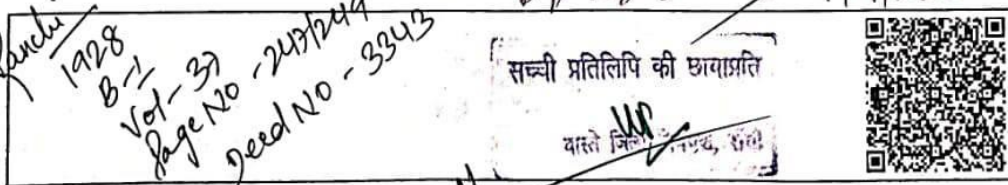 Ranchi
1928
B-1
Vol-37
Page No - 247/249
Deed NO - 3343
सच्ची प्रतिलिपि की छायाप्रति
वास्ते